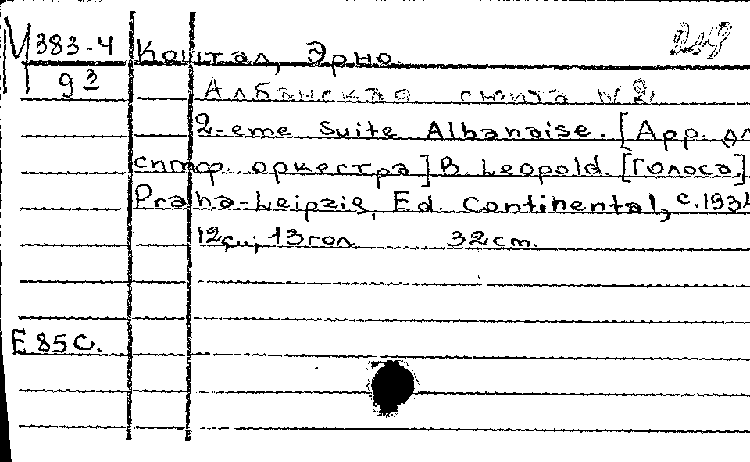 М 383-4
93
Коштал, Эрно.
Албанская сюита №2.
2-eme Suite Albanaise. [Арр. дл
симф. оркестра] B. Leopold. [Голоса]
Praha-Leipzig, Ed. Continental, c.193
12см, 13гол. 32cm.
E 85 C.